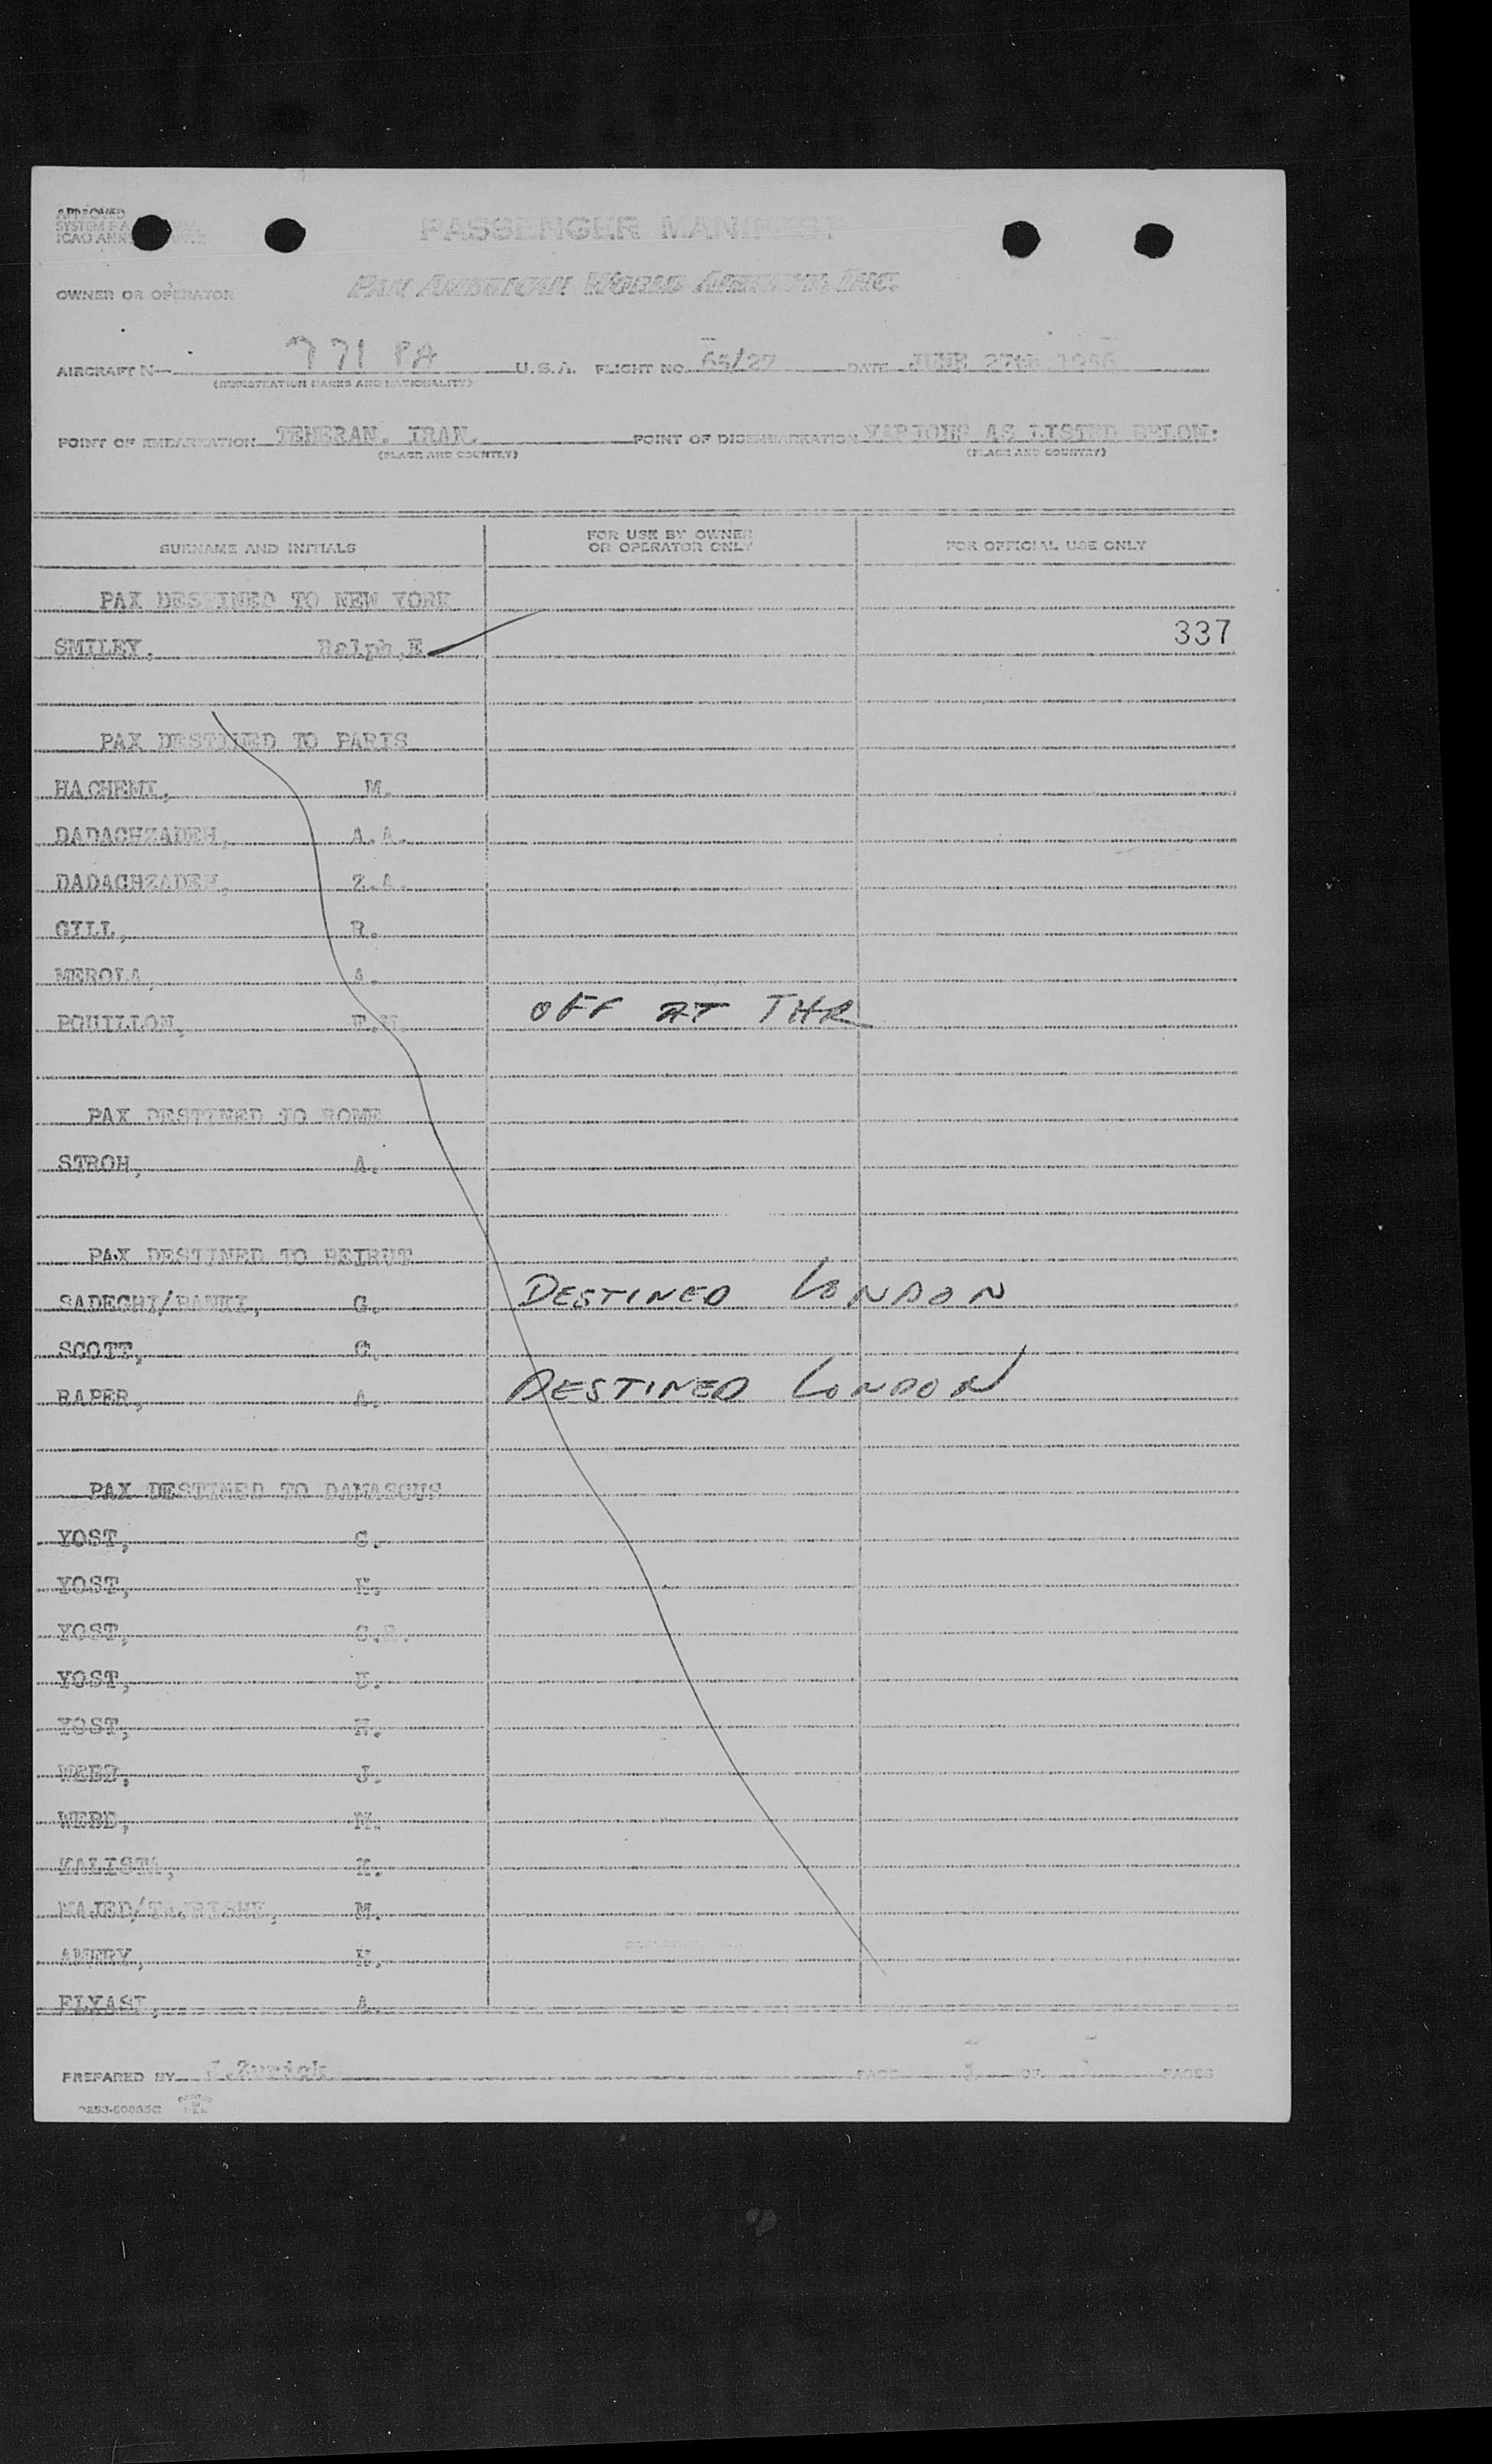 APPROVED
PASSENGER MANIFEST
OWNER OR OPERATOR PAN AMERICAN WORLD AIRWAYS, INC.
AIRCRAFT N— 771 PA U.S.A. FLIGHT NO. 65/27 DATE JUNE 27th 1956
(REGISTRATION MARKS AND NATIONALITY)
POINT OF EMBARKATION TEHERAN. IRAN. POINT OF DISEMBARKATION VARIOUS AS LISTED BELOW:
(PLACE AND COUNTRY) (PLACE AND COUNTRY)
SURNAME AND INITIALS FOR USE BY OWNER OR OPERATOR ONLY FOR OFFICIAL USE ONLY
PAX DESTINED TO NEW YORK
SMILEY, Ralph E 337
PAX DESTINED TO PARIS
HACHEMI, M.
DADACHZADEH, A.A.
DADACHZADEH, Z.A.
GILL, R.
MEROLA, A.
POUILLON, OFF AT THR
PAX DESTINED TO ROME
STROH, A.
PAX DESTINED TO BEIRUT
SADEGHI/ G. DESTINED LONDON
SCOTT, C.
RAPER, A. DESTINED LONDON
PAX DESTINED TO DAMASCUS
YOST, C.
YOST,
YOST,
YOST,
YOST,
WEBB, J.
WEBB, M.
KALISTA, K.
MAJED/ M.
AMERY,
A.
PREPARED BY
PAGE OF PAGES